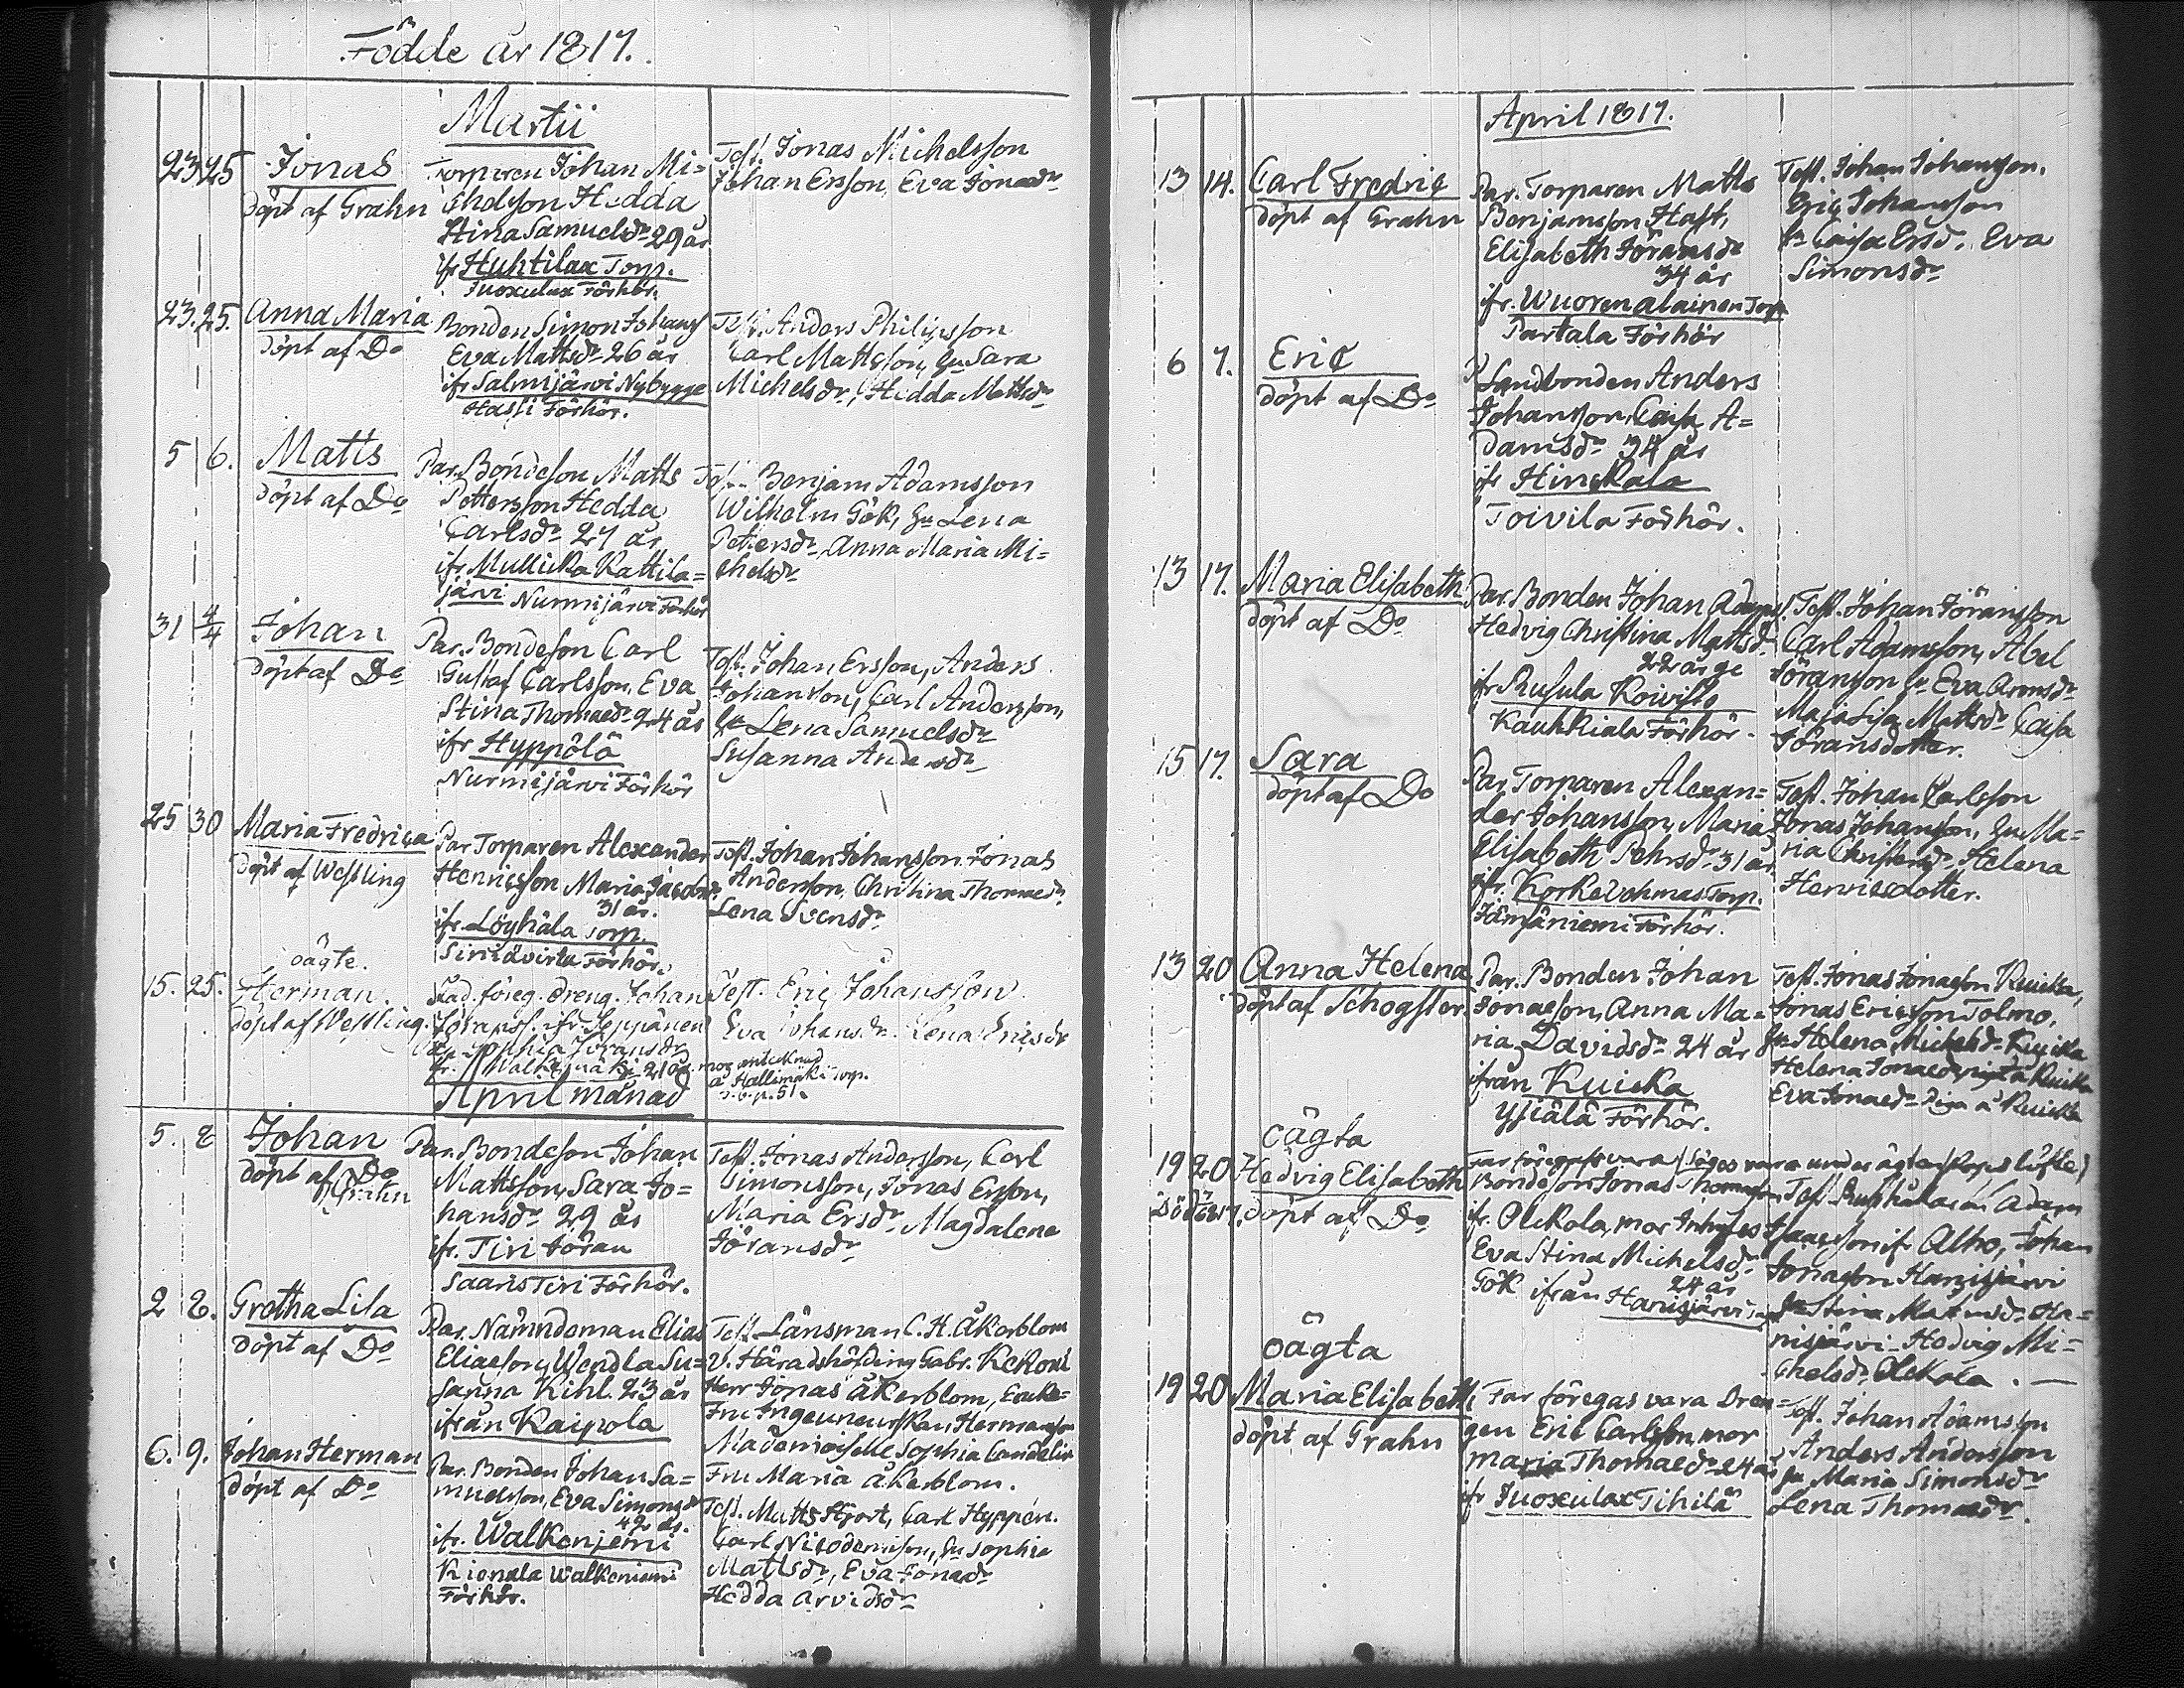 Födde år 1817.
Martii
23 25 Jonas
döpt af Grahn
Torparen Johan Mi=
chelsson Hedda
Stina Samuelsdr 29 år
ifr Huhtilax Torp.
Juoxulax Förhör.
Test. Jonas Michelsson
Johan Ersson, Eva Jonaedr
23. 25. Anna Maria
döpt af Do
Bonden Simon Johanss
Eva Mattsdr 26 år
ifr Salmijärvi Nybygge
Hassi Förhör.
Test. Anders Philipsson
Carl Mattsson, Qu Sara
Michelsdr, Hedda Mattsdr
5 6. Matts
döpt af Do
Par. Bondeson Matts
Pettersson Hedda
Carlsdr 27 år
ifr Mullicka Kattila=
järvi Nurmijärvi Förhör
Benjam Adamsson
Wilhelm Gök, Qu Lena
Petersdr, Anna Maria Mi=
chelsdr
31 4/4 Johan
döpt af Do
Par. Bondeson Carl
Gustaf Carlsson, Eva
Stina Thomaedr 24 år
ifr Hyppölä
Nurmijärvi Förhör
Test. Johan Ersson, Anders
Johansson, Carl Andersson,
Qu Lena Samuelsdr
Susanna Andersdr
25 30 Maria Fredrica
döpt af Westling
Par Torparen Alexander
Henricsson Maria Jacobsdr
31 år.
ifr. Löyhälä Torp.
Förhör.
Test. Johan Johansson Jonas
Andersson, Christina Thomaedr
Lena Svensdr
oägte.
15. 25. Herman.
döpt af Westling.
föreg. dreng. Johan
ifr. Seppänen
Sophia Göransdr
ifr. 21 år.
Test. Eric Johansson
Eva Johansdr. Lena Ericsdr
mor antecknad
å Hallimäki Torp.
April månad
5. 8 Johan
döpt af Do
Grahn
Par. Bondeson Johan
Mattsson, Sara Jo=
hansdr 29 år
ifr. Tiri Jöran
Saaris Tiri Förhör.
Test. Jonas Andersson, Carl
Simonsson, Jonas Ersson,
Maria Ersdr Magdalena
Jöransdr
2 8. Gretha Lisa
döpt af Do
Par. Nämndeman Elias
Eliaeson, Wendla Su=
sanna Kihl 23 år
ifrån Kaipola
Test. Länsman C. H. Åkerblom
V. Häradshöfding Gabr. Kekoni
Herr Jonas Åkerblom,
Fru Hermansson
Mademoiselle Sophia Candelin
Fru Maria Åkerblom.
6. 9. Johan Herman
döpt af Do
Par. Bonden Johan Sa=
muelsson, Eva Simonsdr
42 år.
ifr. Walkeniemi
Walkeniemi
Förhör.
Test. Matts Hjort, Carl Hyppén.
Carl Nicodemson, Qu Sophia
Mattsdr, Eva Jonaedr
Hedda Arvidsdr
April 1817.
13 14. Carl Fredric
döpt af Grahn
Par. Torparen Matts
Benjamsson Hast,
Elisabeth Jöransdr
34 år
ifr. Wuorenalainen Torp
Partala Förhör
Test. Johan Johansson.
Eric Johansson
Qu Caisa Ersdr. Eva
Simonsdr
6 7. Eric
döpt af Do
Landbonden Anders
Johansson, Caisa A=
damsdr 34 år
ifr Hinckala
Toivila Förhör.
13 17. Maria Elisabeth
döpt af Do
Par. Bonden Johan Adamss.
Hedvig Christina Mattsdr
22 år ge
ifr Rusula Koivisto
Kauhkiala Förhör.
Test. Johan Jöransson
Carl Adamsson, Abel
Jöransson Qu Eva Aronsdr
Maja Lisa Mattsdr Caisa
Jöransdotter.
15 17. Sara
döpt af Do
Par Torparen Alexan=
der Johansson, Maria
Elisabeth Pehrsdr 31 år
ifr. Torp.
Jämsäniemi Förhör.
Test. Johan Carlsson
Jonas Johansson, Qu Ma=
ria Helena
Henricsdotter.
13 20 Anna Helena
döpt af Schogster.
Par. Bonden Johan
Jonaeson, Anna Ma=
ria Davidsdr 24 år
ifrån Kuicka
Yjiälä Förhör.
Test. Jonas Jonaeson Kuicka,
Jonas Ericsson Tolmo,
Qu Helena Michelsdr Kuicka
Helena Jonaedr å Kuicka
Eva Jonaedr Piga å Kuicka
oägta
19 20 Hedvig Elisabeth
döpt af Do
Far föregifs vara
Bondeson Jonas Thomasson
ifr. Olckola, mor Inhyses
Eva Stina Michelsdr
Gök ifrån 24 år
Hanisjärvi
Test. Adam
Isaacson if Alho, Johan
Jonaeson Hanisjärvi
Qu Stina Ha=
nisjärvi. Hedvig Mi=
chelsdr. Olckola. —
oägta
19 20 Maria Elisabeth
döpt af Grahn
Far föregas vara Dren=
gen Eric Carlsson, mor
Maria Thomaedr 24 år
ifr Juoxulax Tihilä
Test. Johan Adamsson
Anders Andersson
Qu Maria Simonsdr
Lena Thomaedr.